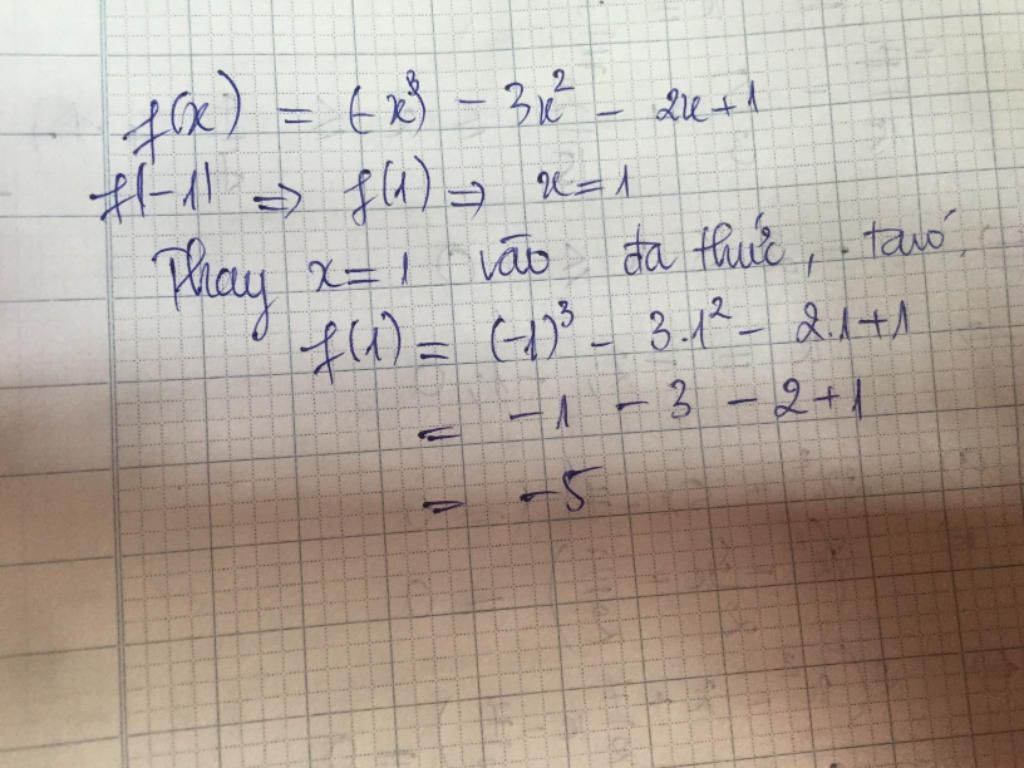 f(x) = (-x³) - 3x² - 2x + 1
f|-1| => f(1) => x = 1
Thay x = 1 vào đa thức, ta có
f(1) = (-1)³ - 3.1² - 2.1 + 1
= -1 - 3 - 2 + 1
= -5